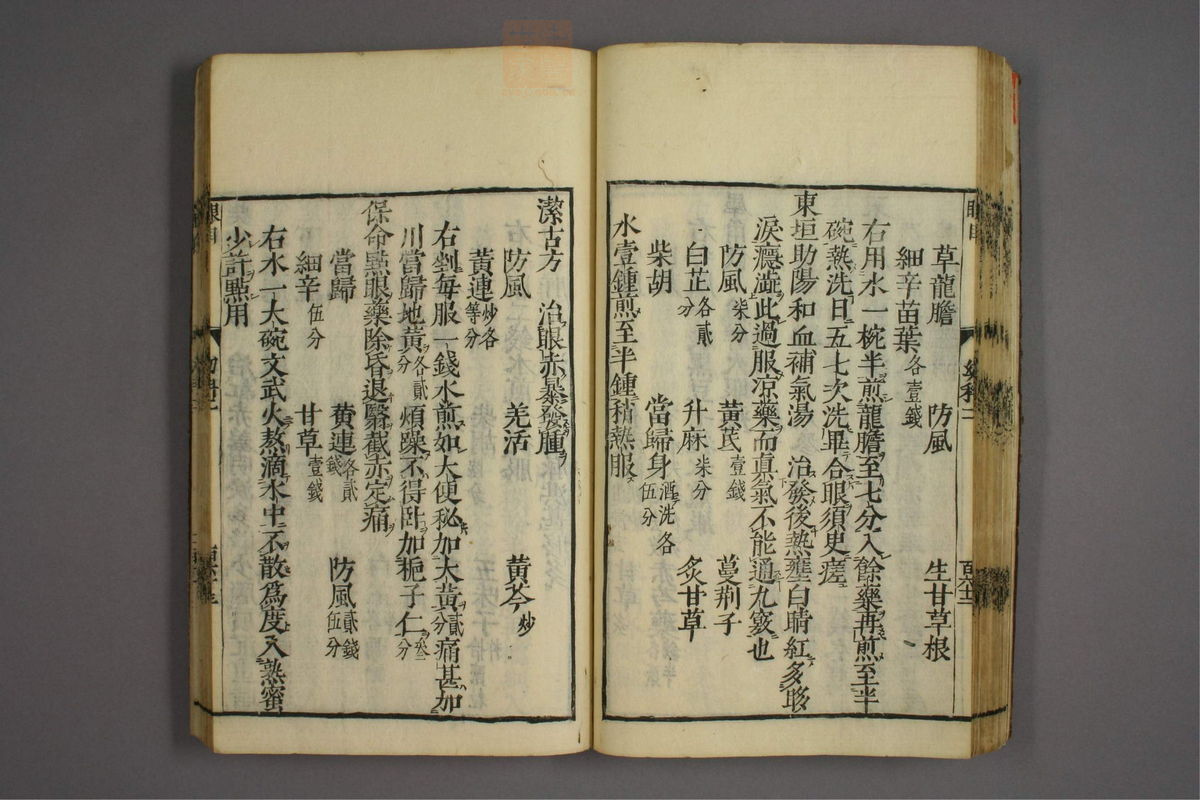 草龍膽 防風 生甘草根
細辛苗葉各壹錢
右用水一椀半煎龍膽至七分入餘藥再煎至半
碗熱洗日五七次洗畢合眼須臾瘥
東垣助陽和血補氣湯 治發後熱壅白睛紅多眵
淚癮澁此過服涼藥而眞氣不能通九竅也
防風柒分 黄芪壹錢 蔓荊子
白芷各貳分 升麻柒分 炙甘草
柴胡 當歸身酒洗各伍分
水壹鍾煎至半鍾稍熱服
潔古方 治眼赤暴發腫
防風 羌活 黄芩炒
黄連炒各等分
右剉每服一錢水煎如大便秘加大黄貳分痛甚加
川當歸地黄各貳分煩躁不得卧加梔子仁
保命㸃眼藥除昏退翳截赤定痛
當歸 黄連各貳錢 防風貳錢伍分
細辛伍分 甘草壹錢
右水一大碗文武火熬滴水中不散爲度入熟蜜
少許㸃用